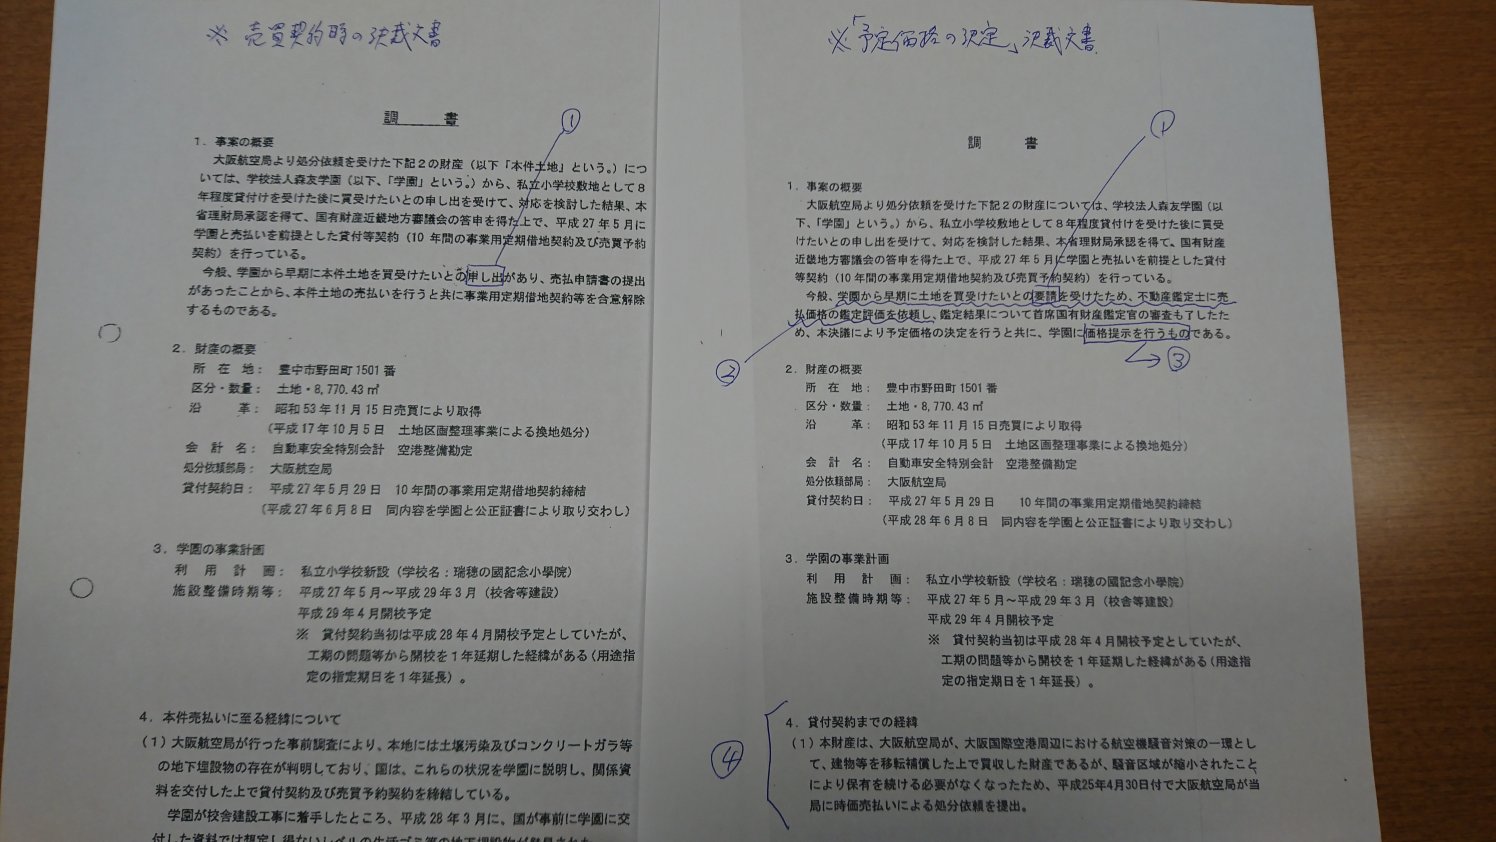 ※ 売買契約時の決裁文書
調 書
①
1．事案の概要
大阪航空局より処分依頼を受けた下記２の財産（以下「本件土地」という。）につ
いては、学校法人森友学園（以下、「学園」という。）から、私立小学校敷地として８
年程度貸付けを受けた後に買受けたいとの申し出を受けて、対応を検討した結果、本
省理財局承認を得て、国有財産近畿地方審議会の答申を得た上で、平成 27 年５月に
学園と売払いを前提とした貸付等契約（10 年間の事業用定期借地契約及び売買予約
契約）を行っている。
今般、学園から早期に本件土地を買受けたいとの申し出があり、売払申請書の提出
があったことから、本件土地の売払いを行うと共に事業用定期借地契約等を合意解除
するものである。
2．財産の概要
所 在 地： 豊中市野田町 1501 番
区分・数量： 土地・8,770.43 ㎡
沿 革： 昭和 53 年 11 月 15 日売買により取得
（平成 17 年 10 月５日 土地区画整理事業による換地処分）
会 計 名： 自動車安全特別会計 空港整備勘定
処分依頼部局： 大阪航空局
貸付契約日： 平成 27 年５月 29 日 10 年間の事業用定期借地契約締結
（平成 27 年６月８日 同内容を学園と公正証書により取り交わし）
3．学園の事業計画
利 用 計 画： 私立小学校新設（学校名：瑞穂の國記念小學院）
施設整備時期等： 平成 27 年５月～平成 29 年３月（校舎等建設）
平成 29 年４月開校予定
※ 貸付契約当初は平成 28 年４月開校予定としていたが、
工期の問題等から開校を１年延期した経緯がある（用途指
定の指定期日を１年延長）。
4．本件売払いに至る経緯について
（1）大阪航空局が行った事前調査により、本地には土壌汚染及びコンクリートガラ等
の地下埋設物の存在が判明しており、国は、これらの状況を学園に説明し、関係資
料を交付した上で貸付契約及び売買予約契約を締結している。
学園が校舎建設工事に着手したところ、平成 28 年３月に、国が事前に学園に交
付した資料では想定し得ないレベルの生活ゴミ等の地下埋設物が発見された
※「予定価格の決定」決裁文書
①
調 書
1．事案の概要
大阪航空局より処分依頼を受けた下記２の財産については、学校法人森友学園（以
下、「学園」という。）から、私立小学校敷地として８年程度貸付けを受けた後に買受
けたいとの申し出を受けて、対応を検討した結果、本省理財局承認を得て、国有財産
近畿地方審議会の答申を得た上で、平成 27 年５月に学園と売払いを前提とした貸付
等契約（10 年間の事業用定期借地契約及び売買予約契約）を行っている。
今般、学園から早期に土地を買受けたいとの要請を受けたため、不動産鑑定士に売
払価格の鑑定評価を依頼し、鑑定結果について首席国有財産鑑定官の審査も了したた
め、本決議により予定価格の決定を行うと共に、学園に価格提示を行うものである。
②
③
2．財産の概要
所 在 地： 豊中市野田町 1501 番
区分・数量： 土地・8,770.43 ㎡
沿 革： 昭和 53 年 11 月 15 日売買により取得
（平成 17 年 10 月５日 土地区画整理事業による換地処分）
会 計 名： 自動車安全特別会計 空港整備勘定
処分依頼部局： 大阪航空局
貸付契約日： 平成 27 年５月 29 日 10 年間の事業用定期借地契約締結
（平成 28 年６月８日 同内容を学園と公正証書により取り交わし）
3．学園の事業計画
利 用 計 画： 私立小学校新設（学校名：瑞穂の國記念小學院）
施設整備時期等： 平成 27 年５月～平成 29 年３月（校舎等建設）
平成 29 年４月開校予定
※ 貸付契約当初は平成 28 年４月開校予定としていたが、
工期の問題等から開校を１年延期した経緯がある（用途指
定の指定期日を１年延長）。
④
4．貸付契約までの経緯
（1）本財産は、大阪航空局が、大阪国際空港周辺における航空機騒音対策の一環とし
て、建物等を移転補償した上で買収した財産であるが、騒音区域が縮小されたこと
により保有を続ける必要がなくなったため、平成25年4月30日付で大阪航空局が当
局に時価売払いによる処分依頼を提出。